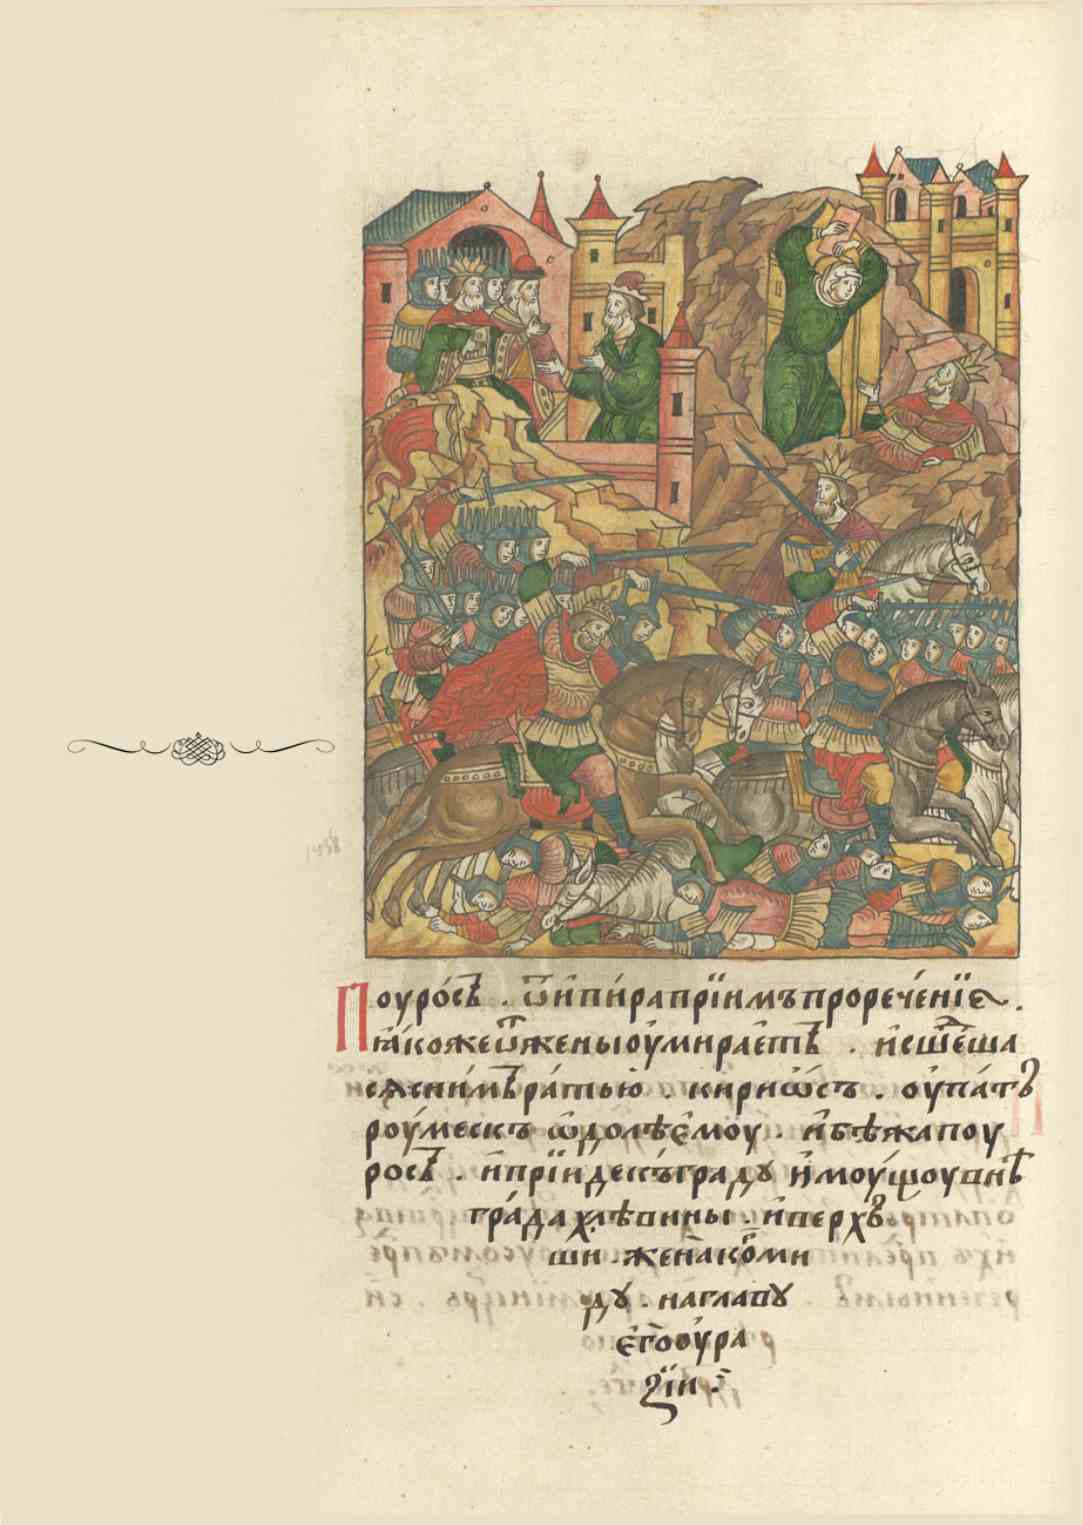 Поуро́съ . ѿ и пи́ра прїимъ проречéнїе .
ꙗ́коже ѿ жены ᲂумира́етъ . и сше́дша
сѧ с ни́мъ ра́тью . кириѡсъ . ᲂу па́тъ
роумескъ ѡдолѣ ємоу . и бѣжа поу
росъ . и прїиде къ градꙋ имоущоу внѣ
гра́да хлѣвины . и верхъ
ши . жена ко́ми
дꙋ . на главꙋ
єго ᲂура
зїи .